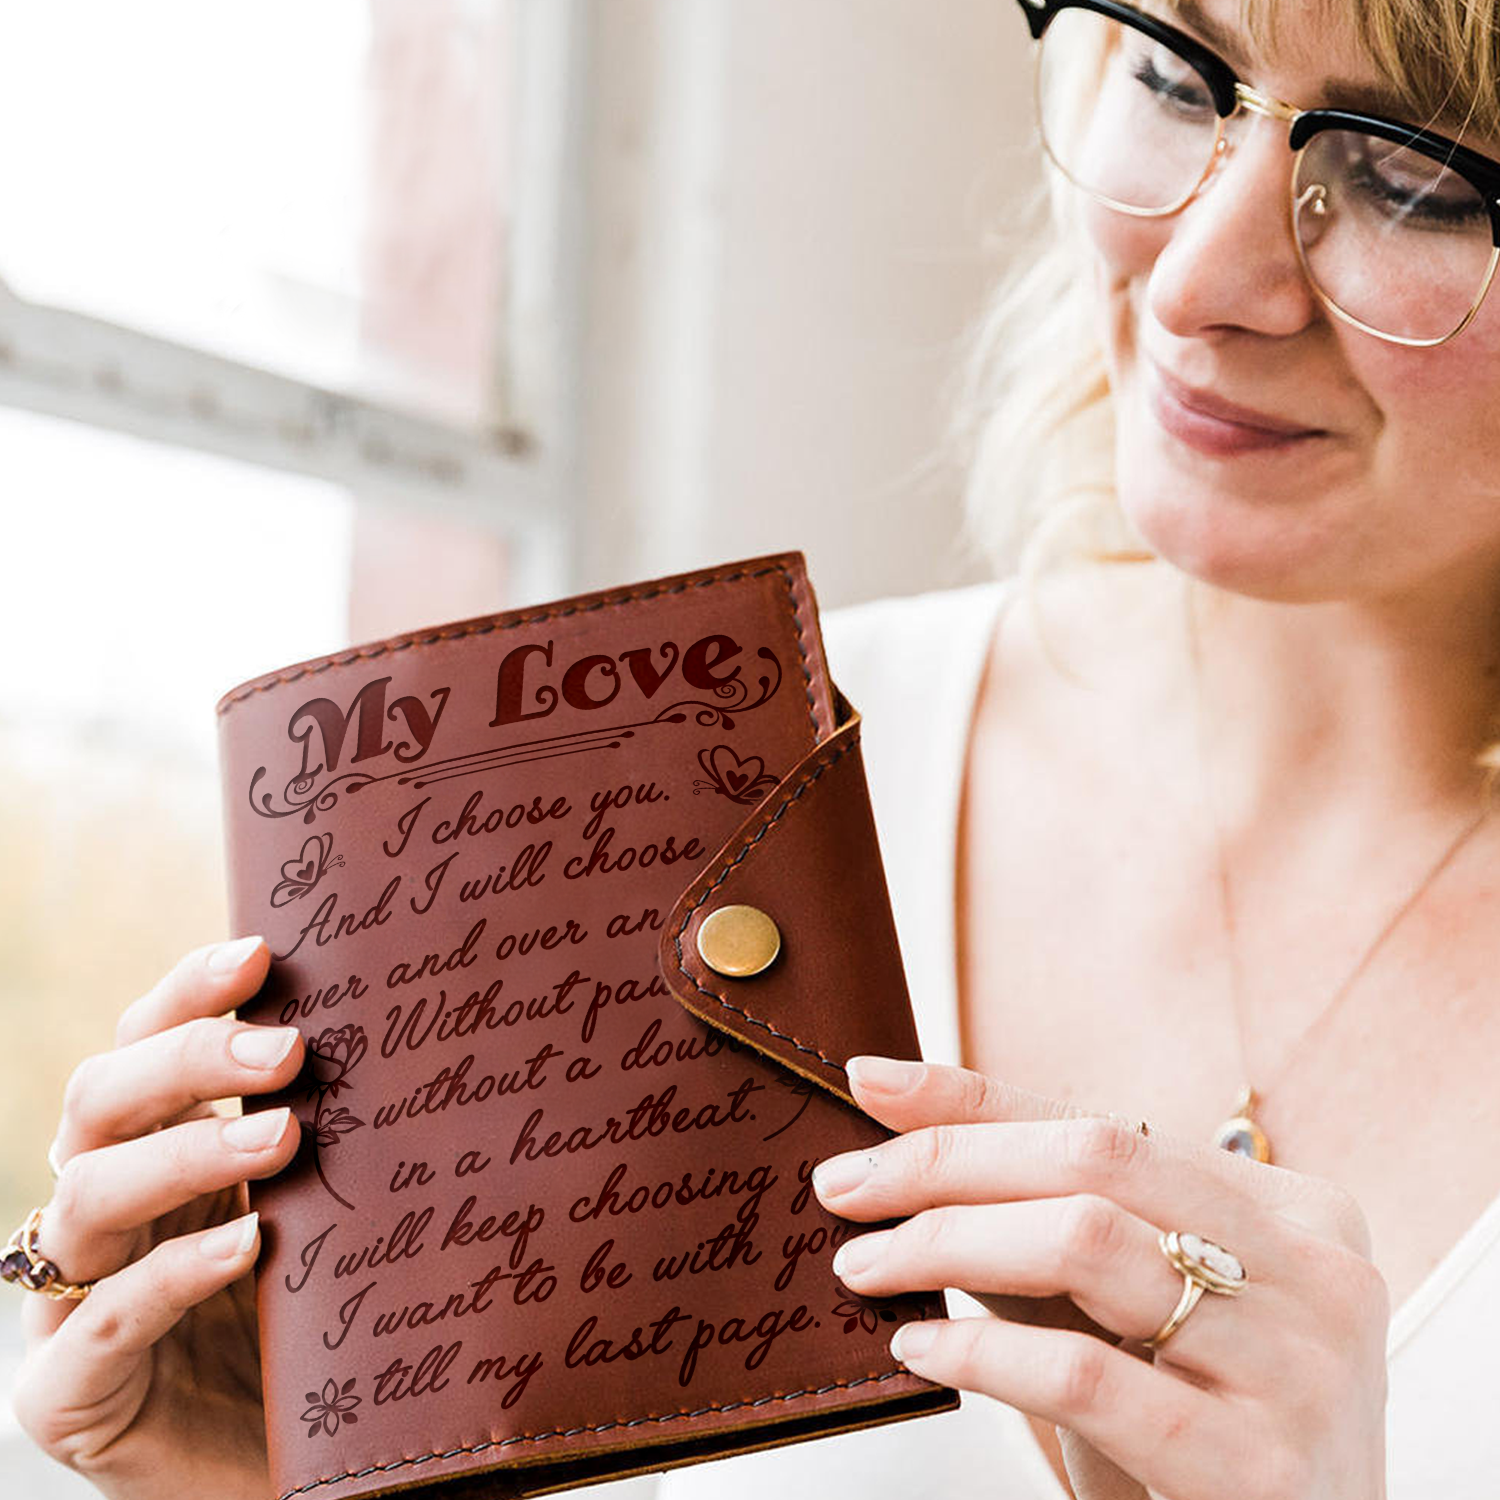 My Love
I choose you.
And I will choose
over and over an
Without pau
without a doub
in a heartbeat.
I will keep choosing y
I want to be with you
till my last page.